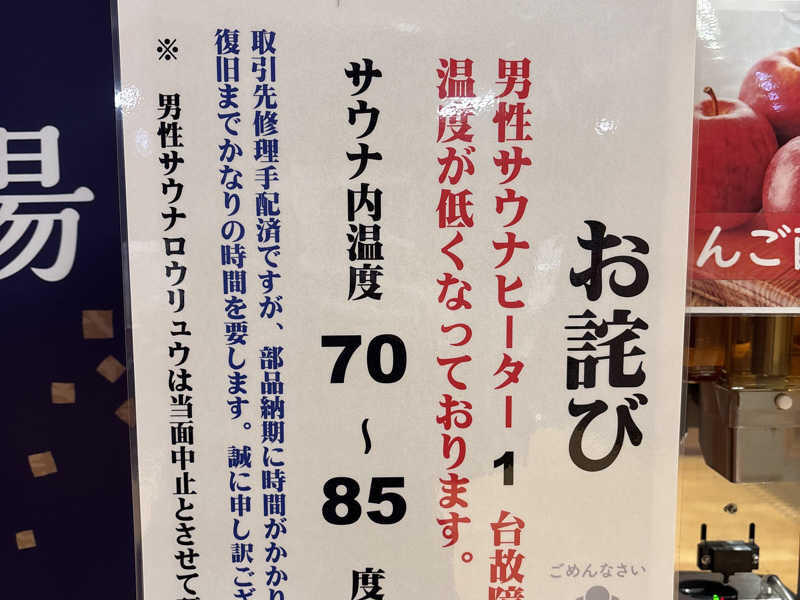 お詫び
男性サウナヒーター 1 台故障
温度が低くなっております。
サウナ内温度 70 ~ 85 度
取引先修理手配済ですが、部品納期に時間がかかり
復旧までかなりの時間を要します。誠に申し訳ござ
※ 男性サウナロウリュウは当面中止とさせて
ごめんなさい
んご
湯